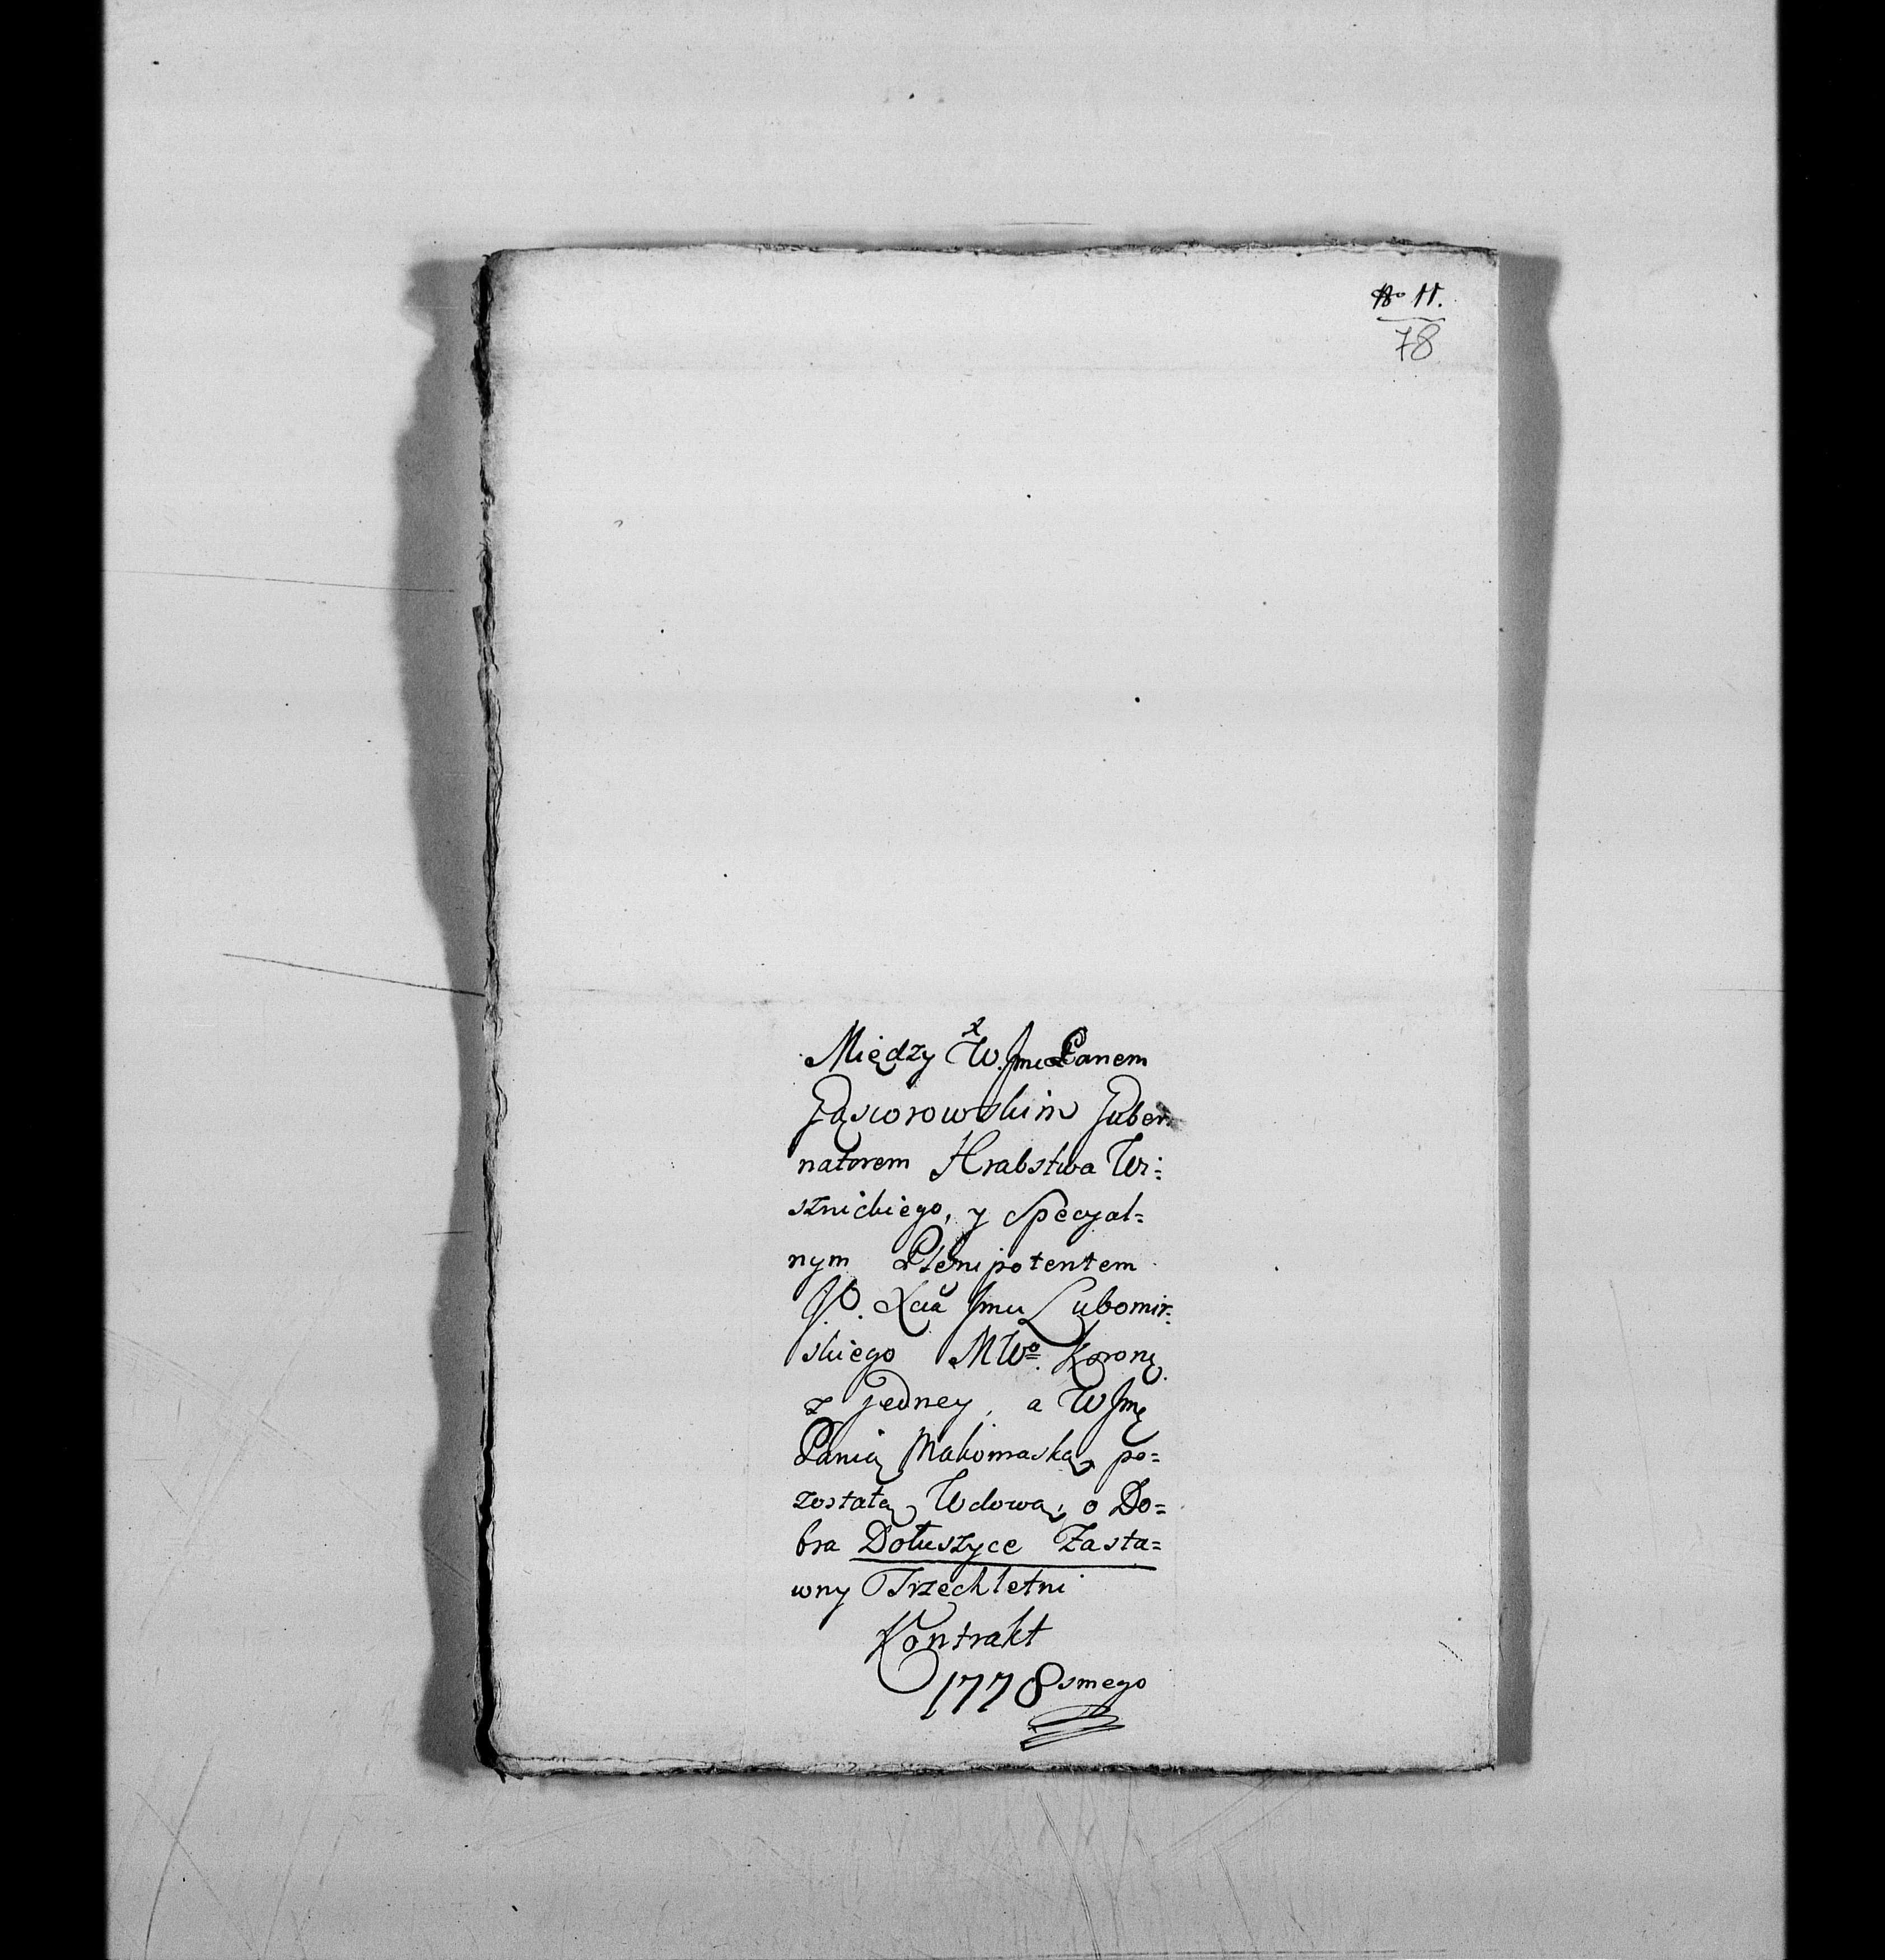 No 11.
78
Między W. Jmć Panem
Gąsiorowskim Guber=
natorem Hrabstwa Wi=
sznickiego, y Specyal=
nym Plenipotentem
J.O. Xcia Jmci Lubomir=
skiego MWo. Koronę.
z Jedney, a W Jmę
Panią Makomaską po=
zostałą Wdową, o Do=
bra Dołuszyce Zasta=
wny Trzechletni
Kontrakt
1778smego